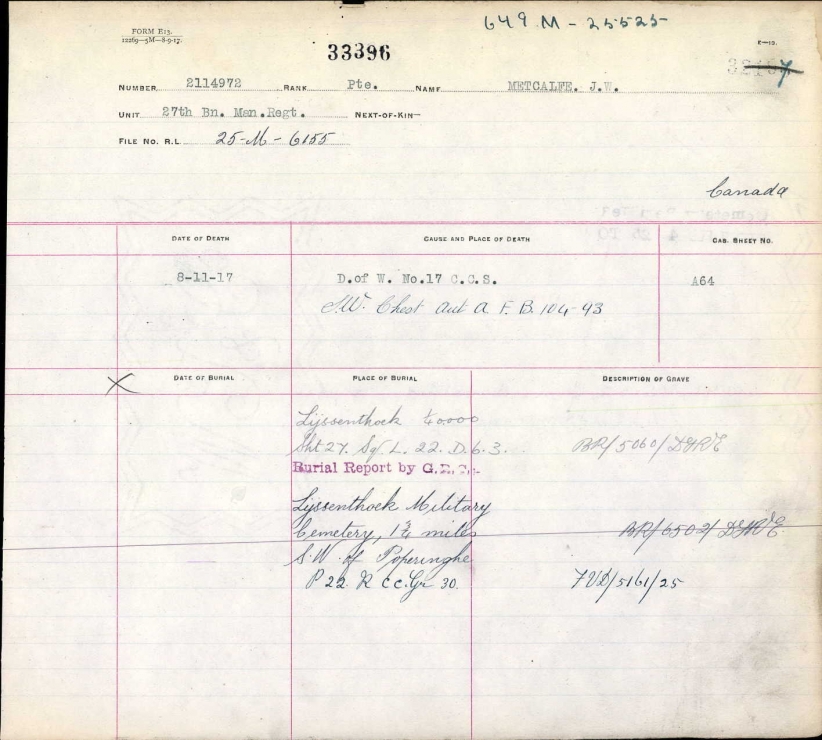 649.M - 25525
FORM E13.
12269—5M—8-9-17.
33396
E—13.
NUMBER 2114972 RANK Pte. NAME METCALFE. J.W.
UNIT 27th Bn. Man.Regt. NEXT-OF-KIN—
FILE NO. R.L. 25-M-6155
Canada
DATE OF DEATH CAUSE AND PLACE OF DEATH CAS. SHEET NO.
8-11-17 D.of W. No.17 C.C.S. A64
S.W. Chest aut A.F.B. 104-93
DATE OF BURIAL PLACE OF BURIAL DESCRIPTION OF GRAVE
Lijssenthoek 1/40000
Sht 27. Sq L. 22. D.6.3. BR/5060/DGRE
Burial Report by G.R.
Lijssenthoek Military
Cemetery, 1¾ miles BR/6502/DGRE
S.W. of Poperinghe
P 22. R CC. Gr 30. FVD/5161/25